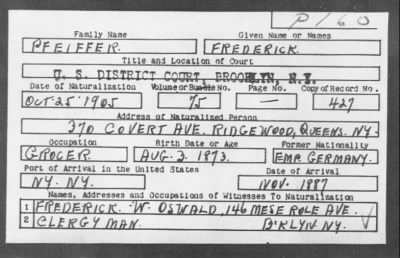 P/60
Family Name Given Name or Names
PFEIFFER FREDERICK
Title and Location of Court
U. S. DISTRICT COURT, BROOKLYN, N.Y.
Date of Naturalization Volume or Bundle No. Page No. Copy of Record No.
OCT 25 1905 75 — 427
Address of Naturalized Person
370 COVERT AVE. RIDGEWOOD, QUEENS, NY.
Occupation Birth Date or Age Former Nationality
GROCER AUG. 3. 1873. EMP. GERMANY.
Port of Arrival in the United States Date of Arrival
NY. NY. NOV. 1887
Names, Addresses and Occupations of Witnesses To Naturalization
1 FREDERICK. W. OSWALD, 146 MESEROLE AVE.
2 CLERGY MAN. B'KLYN NY.